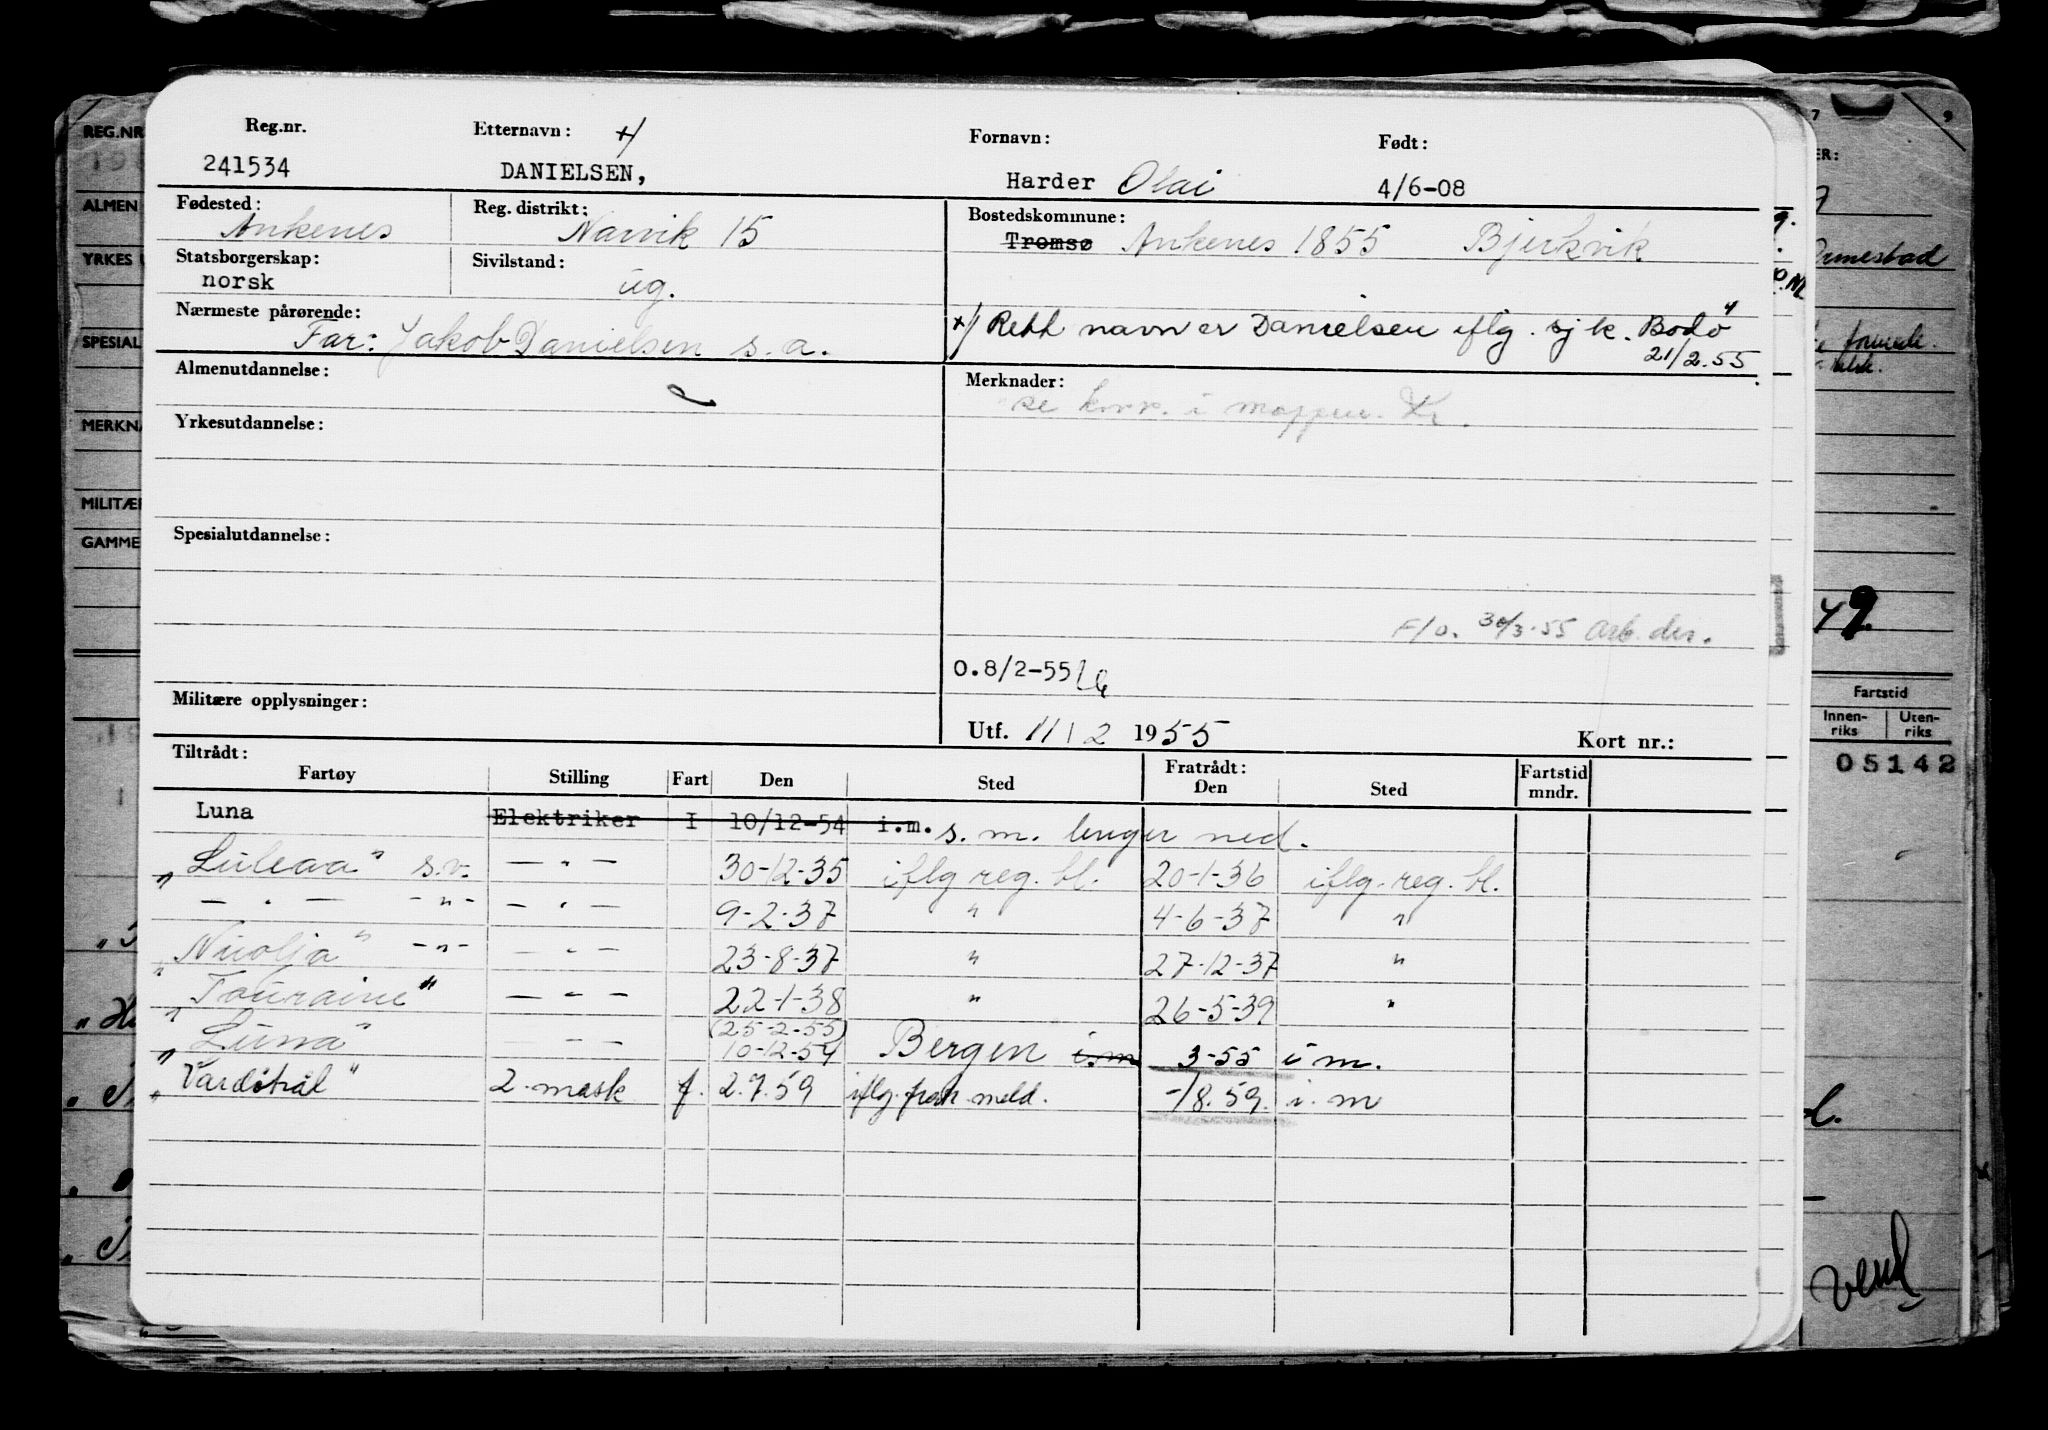 Reg.nr. Etternavn: +/ Fornavn: Født:
241534 DANIELSEN, Harder Olai 4/6-08
Fødested: Reg. distrikt: Bostedskommune:
Ankenes Narvik 15 Tromsø Ankenes 1855 Bjerkvik
Statsborgerskap: Sivilstand:
norsk ug.
Nærmeste pårørende: +/ Rett navn er Danielsen iflg. sjk. Bodø"
Far: Jakob Danielsen s.a. 21/2.55
Almenutdannelse: Merknader:
se korr. i mappen.
Yrkesutdannelse:
Spesialutdannelse:
F/o. 30/3-55 arb. dir.
O.8/2-55
Militære opplysninger: Utf. 11/2 1955 Kort nr.:
Tiltrådt: Fratrådt:
Fartøy Stilling Fart Den Sted Den Sted Fartstid mndr.
Luna Elektriker I 10/12-54 i.m. s.m. lenger ned.
"Luleaa" s.v. — " — 30-12-35 iflg reg. bl. 20-1-36 iflg. reg. bl.
— " — -"- — " — 9-2-37 " 4-6-37 "
"Nuolja" -"- — " — 23-8-37 " 27-12-37 "
"Touraine" — " — 22-1-38 " 26-5-39 "
(25-2-55)
"Luna" — — 10-12-54 Bergen i.m 3-55 i m.
"Vardstrål" 2. mask f. 2.7.59 iflg. fratr. meld. -/8.59. i.m
REG.NR
ALMEN
YRKES
SPESIAL
MERKNA
MILITÆR
GAMME
ER:
Ormestad
49
Fartstid
Innen-riks Uten-riks
05142
vend